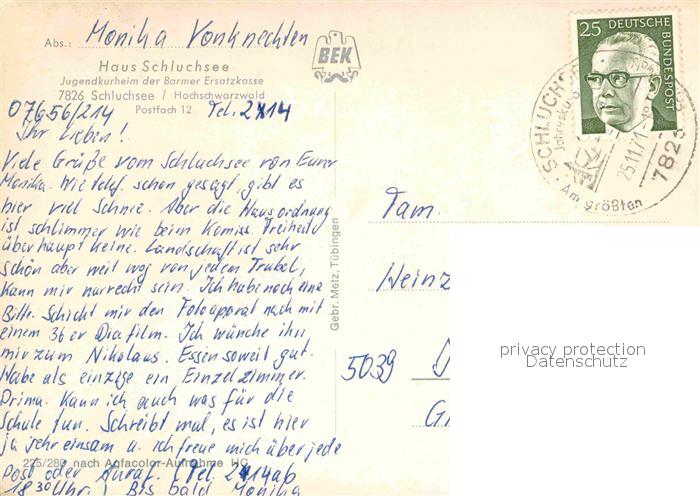 Abs.: Monika Vonknechten
BEK
Haus Schluchsee
Jugendkurheim der Barmer Ersatzkasse
7826 Schluchsee / Hochschwarzwald
Postfach 12
07656/214 Tel. 214
Ihr Lieben!
Viele Grüße vom Schluchsee von Eurer
Monika. Wie telef. schon gesagt, gibt es
hier viel Schnee. Aber die Hausordnung
ist schlimmer wie beim Komiss. Freiheit
überhaupt keine. Landschaft ist sehr
schön aber weit weg von jedem Trubel,
kann mir nur recht sein. Ich habe noch eine
Bitte. Schickt mir den Fotoapparat noch mit
einem 36er Diafilm. Ich wünche ihn
mir zum Nikolaus. Essen soweit gut.
Habe als einzige ein Einzelzimmer.
Prima. Kann ich auch was für die
Schule tun. Schreibt mal, es ist hier
ja sehr einsam u. ich freue mich über jede
225/280 nach Agfacolor-Aufnahme HG
Post oder Anruf. (Tel. 214 ab
18 30 Uhr) Bis bald Monika
Gebr. Metz, Tübingen
25 DEUTSCHE BUNDESPOST
SCHLUCHS
Jahresku
25.11.71
7826
Am größten
Fam.
Heinz
5039
privacy protection
Datenschutz